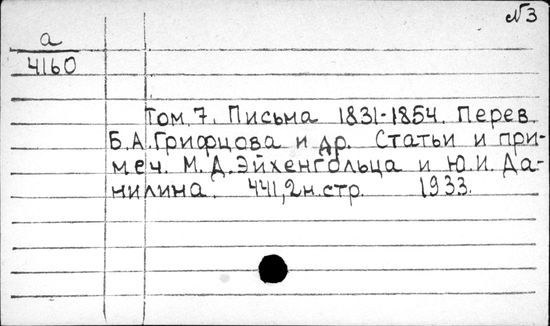 №3
а
4160
Том 7. Письма 1831-1854. Перев.
Б.А.Грифцова и др. Статьи и при-
меч. М.Д.Эйхенгольца и Ю.И. Да-
нилина. 441,2н.стр. 1933.